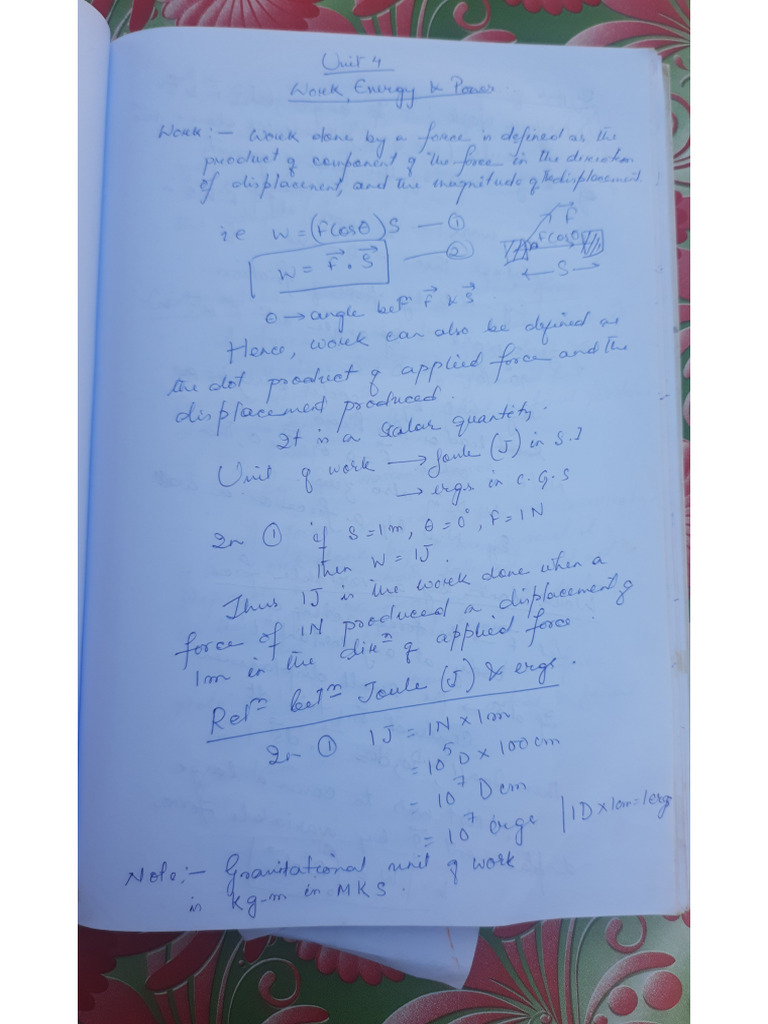 Unit 4
Work, Energy & Power
Work :- Work done by a force is defined as the
product of component of the force in the direction
of displacement, and the magnitude of the displacement.
i.e W = (F Cosθ) S — ①
W = F⃗ . S⃗ — ②
F⃗
F Cosθ
← S →
θ → angle betⁿ F⃗ & S⃗
Hence, work can also be defined as
the dot product of applied force and the
displacement produced.
It is a scalar quantity.
Unit of work → Joule (J) in S.I
→ ergs in C.G.S
In ① if S = 1m, θ = 0°, F = 1N
Then W = 1J.
Thus 1J is the work done when a
force of 1N produced a displacement of
1m in the dirⁿ of applied force.
Relⁿ betⁿ Joule (J) & ergs.
In ① 1J = 1N × 1m
= 10⁵ D × 100 cm
= 10⁷ D cm
= 10⁷ ergs | 1D × 1cm = 1ergs
Note :- Gravitational unit of work
is kg-m in MKS.